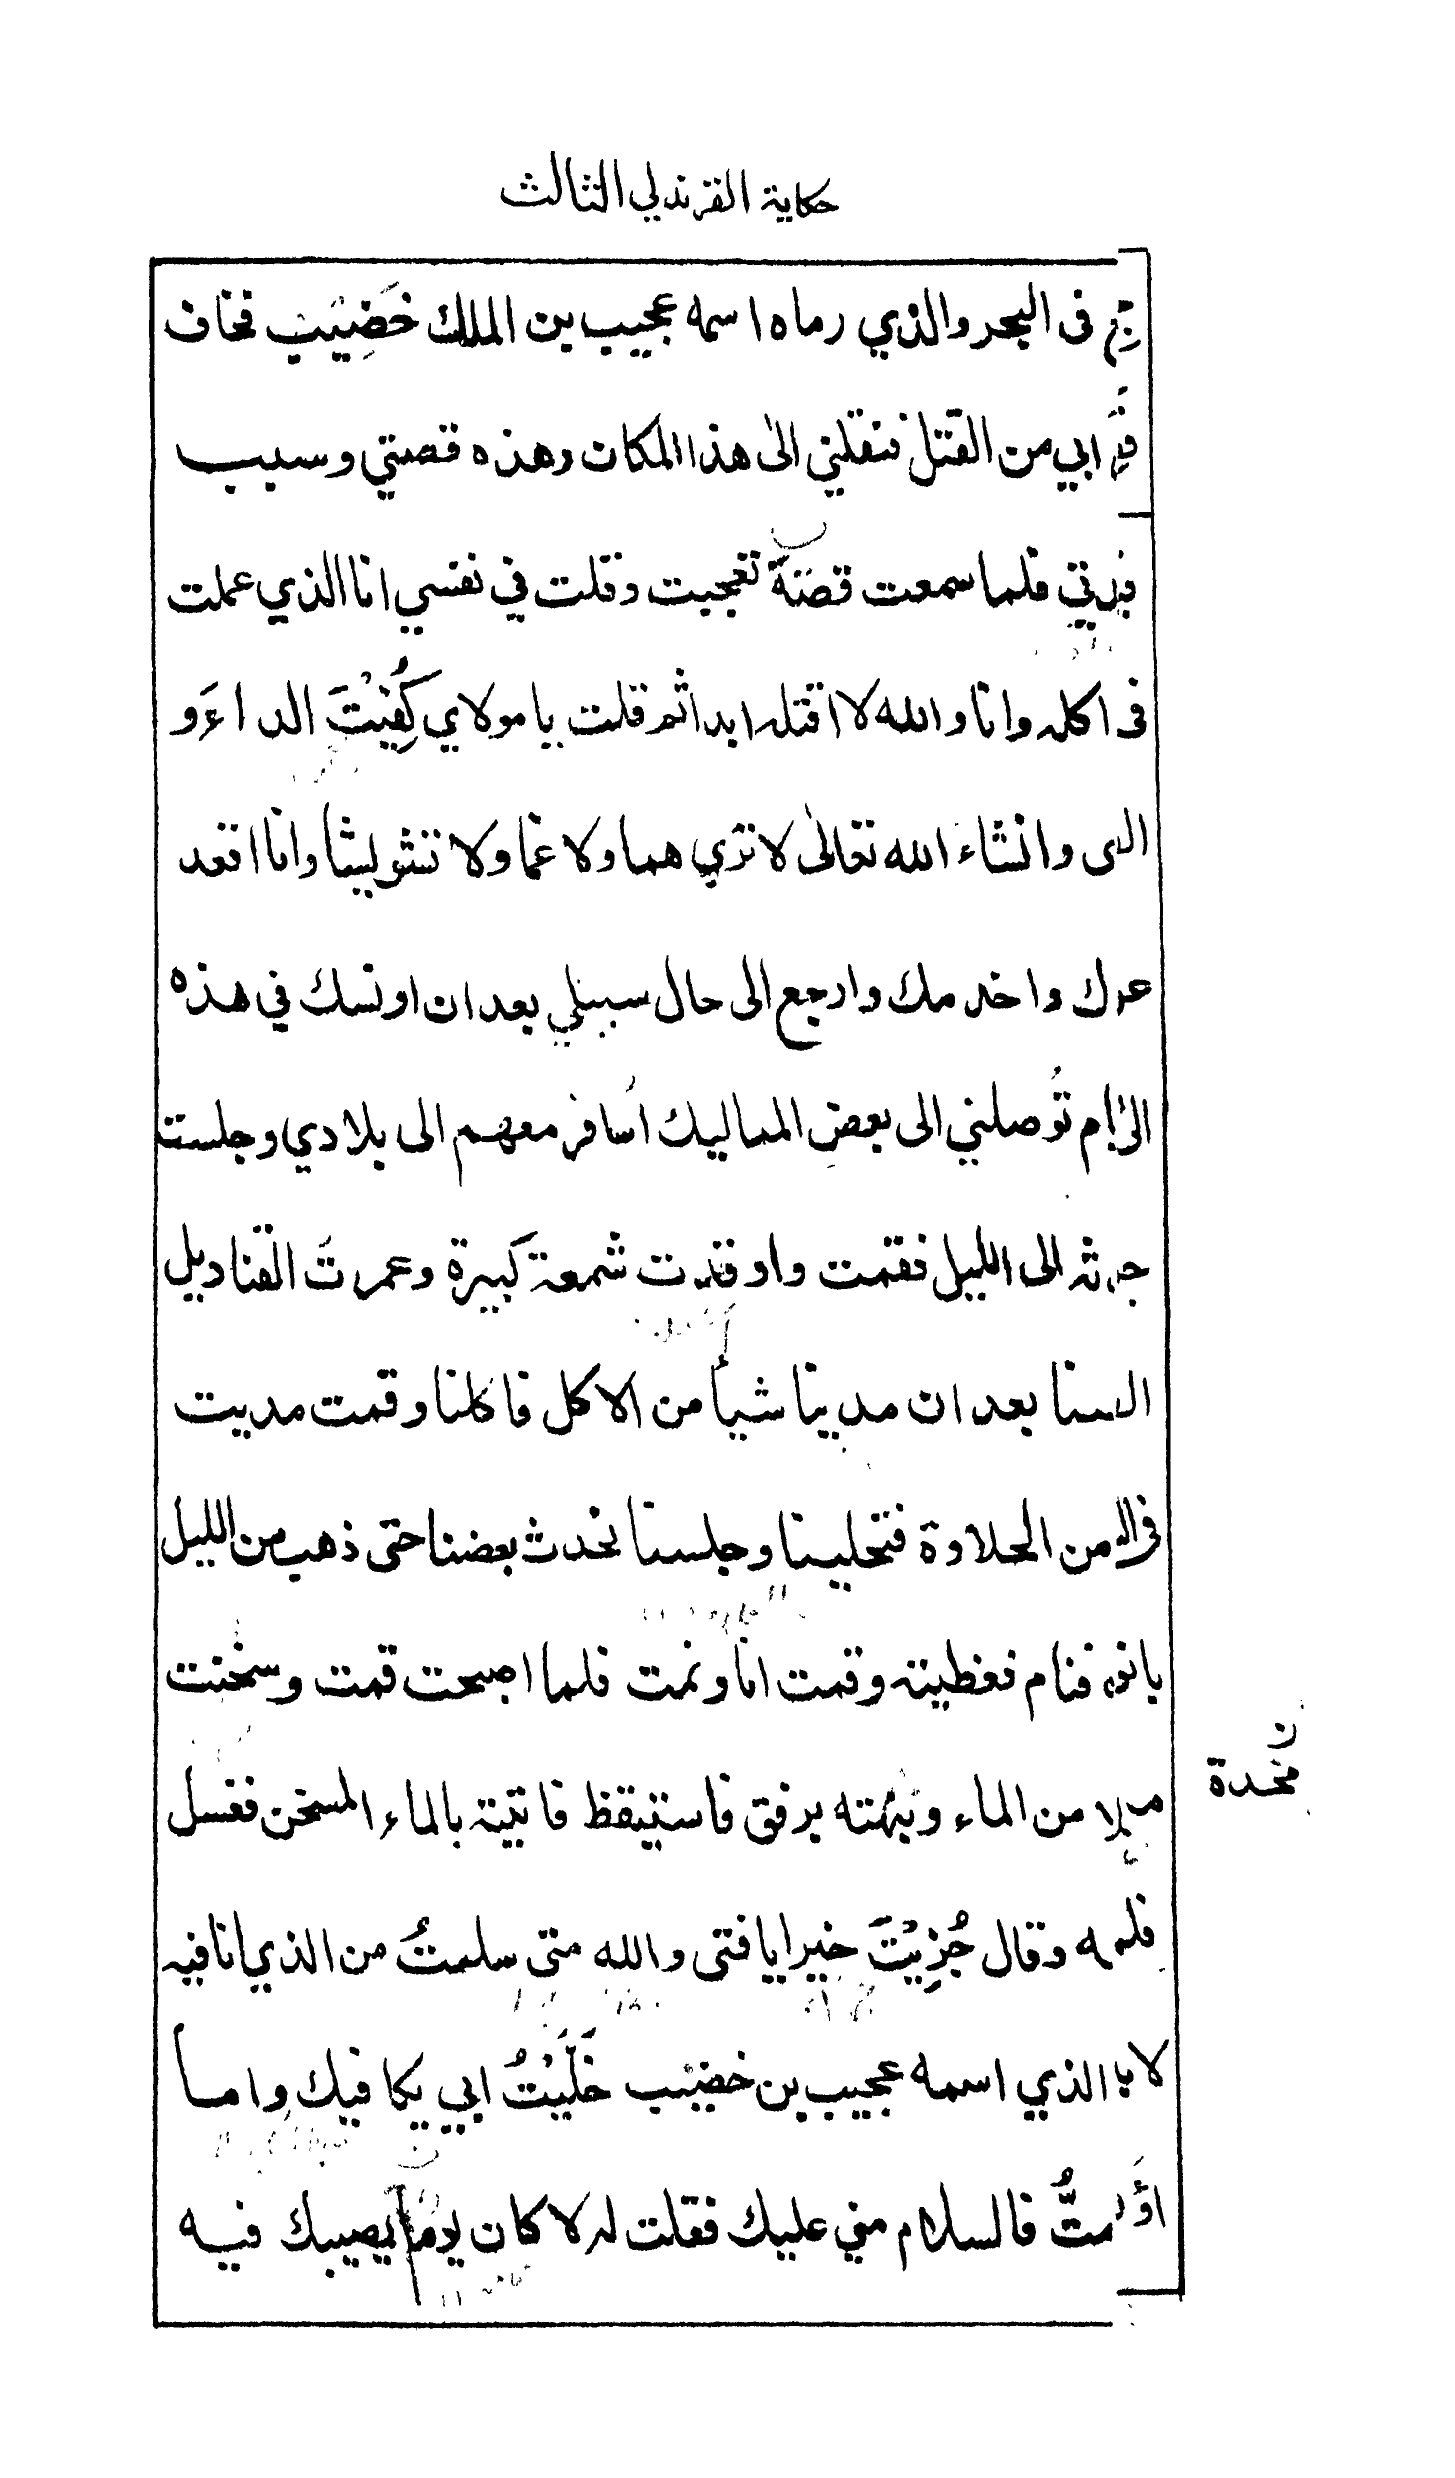 حكاية القرندلي الثالث
فى البحر والذي رماه اسمه عجيب بن الملك خَضِيَب فخاف
ابي من القتل فنقلني الىٰ هذا المكان وهذه قصتي وسبب
فلما سمعت قصتهَ تعجبت وقلت في نفسي انا الذي عملت
فى اكله وانا والله لا اقتله ابدا ثم قلت يا مولاي كُفِيْتَ الداءَ و
وانشاء الله تعالىٰ لا تري هما ولا غما ولا تشويشا وانا اقعد
واخدمك وارجع الى حال سبيلي بعد ان اونسك في هذه
تُوصلني الى بعض المماليك اُسافر معهم الى بلادي وجلست
الى الليل فقمت واوقدت شمعة كبيرة وعمرتَ القناديل
بعد ان مدينا شيأ من الاكل فاكلنا وقمت مديت
من الحلاوة فتحلينا وجلسنا نحدث بعضنا حتى ذهب من الليل
فنام فغطيته وقمت انا ونمت فلما اصبحت قمت وسخنت
من الماء ونبهته برفق فاستيقظ فاتيته بالماء المسخن فغسل
ن
مخدة
وقال جُزِيْتَ خيرا يا فتى والله متى سلمتُ من الذي انا فيه
الذي اسمه عجيب بن خضيب خَلَّيْتُ ابي يكافيك واما
متُّ فالسلام مني عليك فقلت له لا كان يوما يصيبك فيه